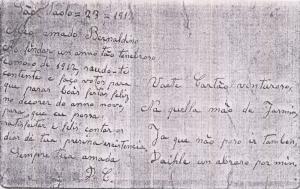 São Paulo = 23 = 1912
Meu amado Bernaldino
Ao findar um anno tão tenebroso
como o de 1912, saudo-te
contente e faço votos para
que passar boas festas feliz
no decorer do anno novo
para que eu possa
satisfeita e feliz contar os
dias de tua preciosa existencia
Sempre tua amada
Vaete Cartão venturoso,
Na quella mão de Jasmim,
Ja que não poso ir tambem,
Daihle um abraso por mim,